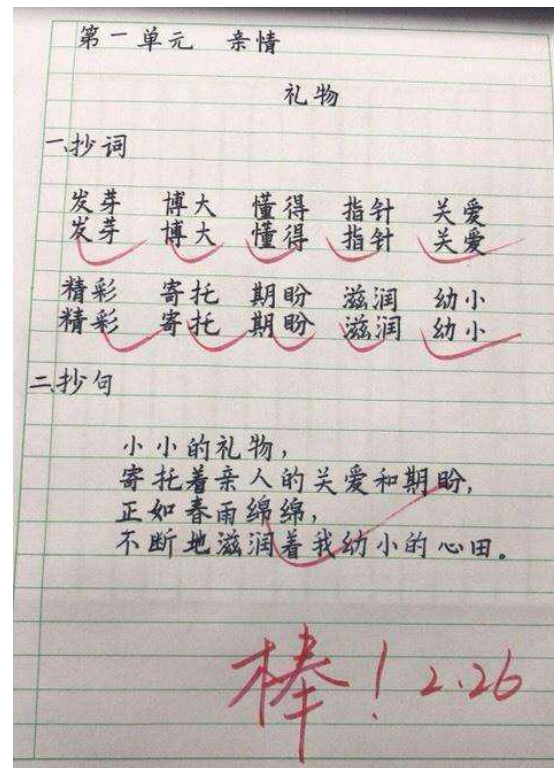 第一单元 亲情
礼物
一、抄词
发芽 博大 懂得 指针 关爱
发芽 博大 懂得 指针 关爱
精彩 寄托 期盼 滋润 幼小
精彩 寄托 期盼 滋润 幼小
二、抄句
小小的礼物，
寄托着亲人的关爱和期盼，
正如春雨绵绵，
不断地滋润着我幼小的心田。
棒！2.26